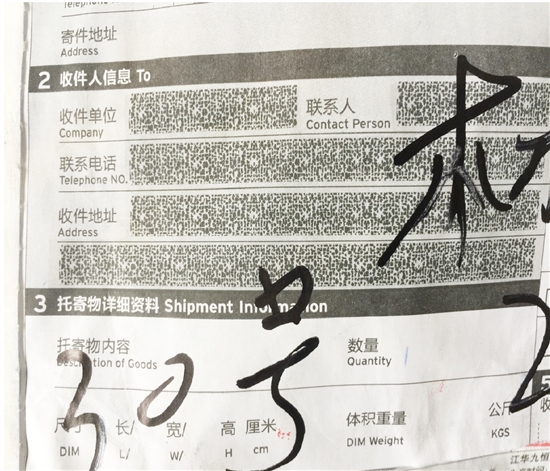 寄件地址
Address
2 收件人信息 To
收件单位
Company
联系人
Contact Person
联系电话
Telephone NO.
收件地址
Address
3 托寄物详细资料 Shipment Information
托寄物内容
Description of Goods
数量
Quantity
30号
尺寸 长/ 宽/ 高 厘米
DIM L/ W/ H cm
体积重量
DIM Weight
公斤
KGS
江华九恒